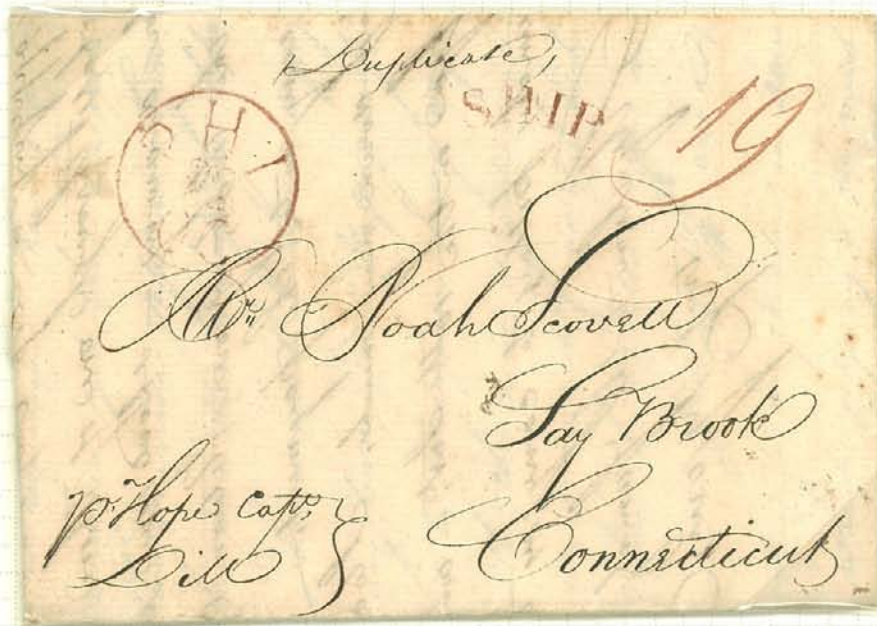 Duplicate,
SHIP
19
Mr. Noah Scovell
Say Brook
Connecticut
pr. Hope Captn.
Dill